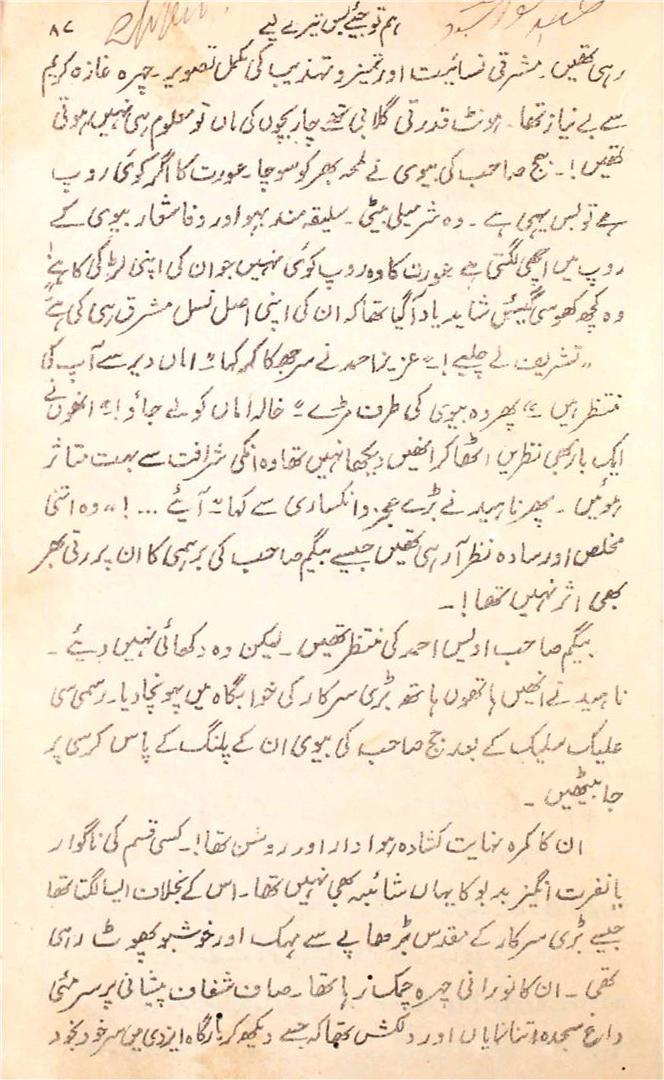 ہم تو جیئے بس تیرے لیے ۸۷
رہی تھیں۔ مشرقی نسائیت اور تمیز و تہذیب کی مکمل تصویر۔ چہرہ غازہ کریم
سے بے نیاز تھا۔ ہونٹ قدرتی گلابی تھے چار بچوں کی ماں تو معلوم ہی نہیں ہوتی
تھیں!۔ جج صاحب کی بیوی نے لمحہ بھر کو سوچا۔ عورت کا اگر کوئی روپ
ہے تو بس یہی ہے۔ وہ شرمیلی بیٹی۔ سلیقہ مند بہو اور وفا شعار بیوی کے
روپ میں اچھی لگتی ہے عورت کا وہ روپ کوئی نہیں جو ان کی اپنی لڑکی کا ہے!
وہ کچھ کھو سی گئیں شاید یاد آ گیا تھا کہ ان کی اپنی اصل نسل مشرق ہی کی ہے"
"تشریف لے چلیے!" عزیز احمد نے سر جھکا کر کہا " اماں دیر سے آپ کی
منتظر ہیں۔" پھر وہ بیوی کی طرف مڑے " خالہ اماں کو لے جاؤ!" انھوں نے
ایک بار بھی نظریں اٹھا کر انھیں دیکھا نہیں تھا وہ انکی شرافت سے بہت متاثر
ہوئیں۔ پھر ناہید نے بڑے عجز و انکساری سے کہا " آیئے ...!" وہ اتنی
مخلص اور سادہ نظر آ رہی تھیں جیسے بیگم صاحب کی برہمی کا ان پر رتی بھر
بھی اثر نہیں تھا!۔
بیگم صاحب اویس احمد کی منتظر تھیں۔ لیکن وہ دکھائی نہیں دیئے۔
ناہید نے انھیں ہاتھوں ہاتھ بڑی سرکار کی خوابگاہ میں پہونچا دیا۔ رسمی سی
علیک سلیک کے بعد جج صاحب کی بیوی ان کے پلنگ کے پاس کرسی پر
جا بیٹھیں۔
ان کا کمرہ نہایت کشادہ ہوا دار اور روشن تھا!۔ کسی قسم کی ناگوار
یا نفرت انگیز بدبو کا یہاں شائبہ بھی نہیں تھا۔ اس کے بخلات ایسا لگتا تھا
جیسے بڑی سرکار کے مقدس بڑھاپے سے مہک اور خوشبو پھوٹ رہی
تھی۔ ان کا نورانی چہرہ چمک رہا تھا۔ صاف شفاف پیشانی پر سرمئی
داغ سجدہ اتنا نمایاں اور دلکش تھا کہ جسے دیکھ کر بارگاہ ایزدی میں سر خود بخود